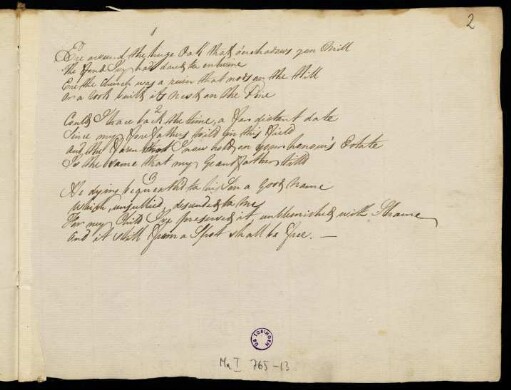 1
2
Ere around the huge Oak that o'ershadows yon Mill
the fond Ivy had dared to entwine
Ere the Church was a ruin that nods on the Hill
Or a Rook built its Nest on the Pine
2
Could I trace back the time, a far distant date
Since my forefathers toild in this field
and the farm I now hold on your honour's Estate
Is the same that my Grandfather till'd
3
He dying bequeathed to his Son a Good Name
Which unsullied, descended to me
For my Child I've preserved it, unblemished with Shame
and it still from a Spot shall be free. —
Ms I 765-13